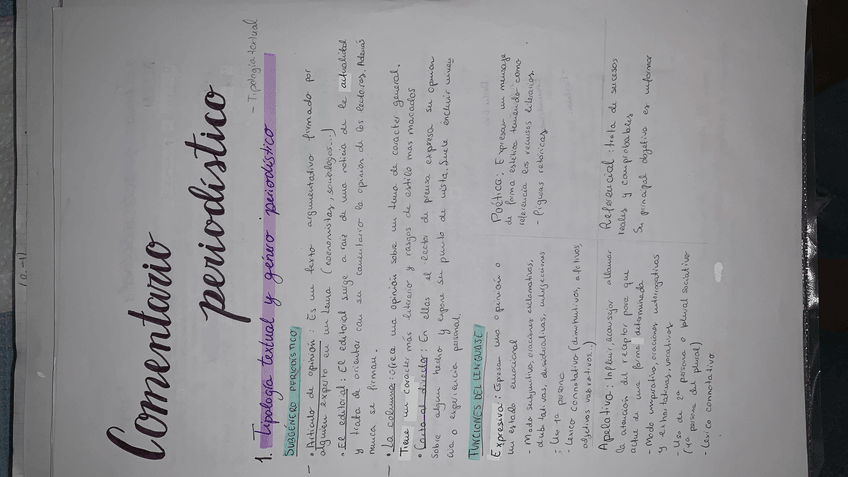 Comentario
periodístico
- Tipología textual
1. Tipología textual y género periodístico
SUBGÉNERO PERIODÍSTICO
• Artículo de opinión: Es un texto argumentativo firmado por
alguien experto en un tema (economistas, sociólogos...)
• El editorial: El editorial surge a raiz de una noticia de la actualidad
y trata de orientar con su comentario la opinion de los lectores. Además
nunca se firman.
• La columna: ofrece una opinión sobre un tema de caracter general.
Tiene un carácter más literario y rasgos de estilo mas marcados
• Carta al director: En ellas el lector de prensa expresa su opinion
sobre algun hecho y expone su punto de vista. Suele incluir una
o experiencia personal.
FUNCIONES DEL LENGUAJE
Expresiva: Expresar una opinión o
un estado emocional
- Modo subjuntivo, oraciones exclamativas,
dubitativas, desiderativas, interjecciones
: Uso 1ª persona
- Léxico connotativo (diminutivos, adjetivos
adjetivos valorativos...)
Poética: Expresar un mensaje
de forma estética teniendo como
referencia los recursos literarios.
- figuras retóricas
Apelativa: Influir, aconsejar o llamar
la atención del receptor para que
actúe de una forma determinada
- Modo imperativo, oraciones interrogativas
y exhortativas, vocativos
- Uso de 2ª persona o plural sociativo
(1ª persona del plural)
- Léxico connotativo
Referencial: trata de sucesos
reales y comprobables
Su principal objetivo es informar